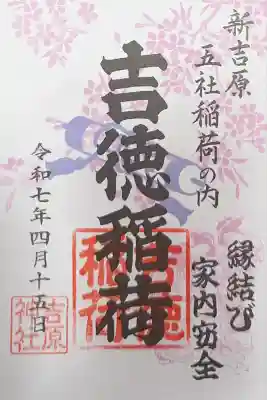 新吉原
五社稲荷の内
縁結び
家内安全
吉徳稲荷
令和七年四月十五日
吉徳
稲荷
吉原
神社